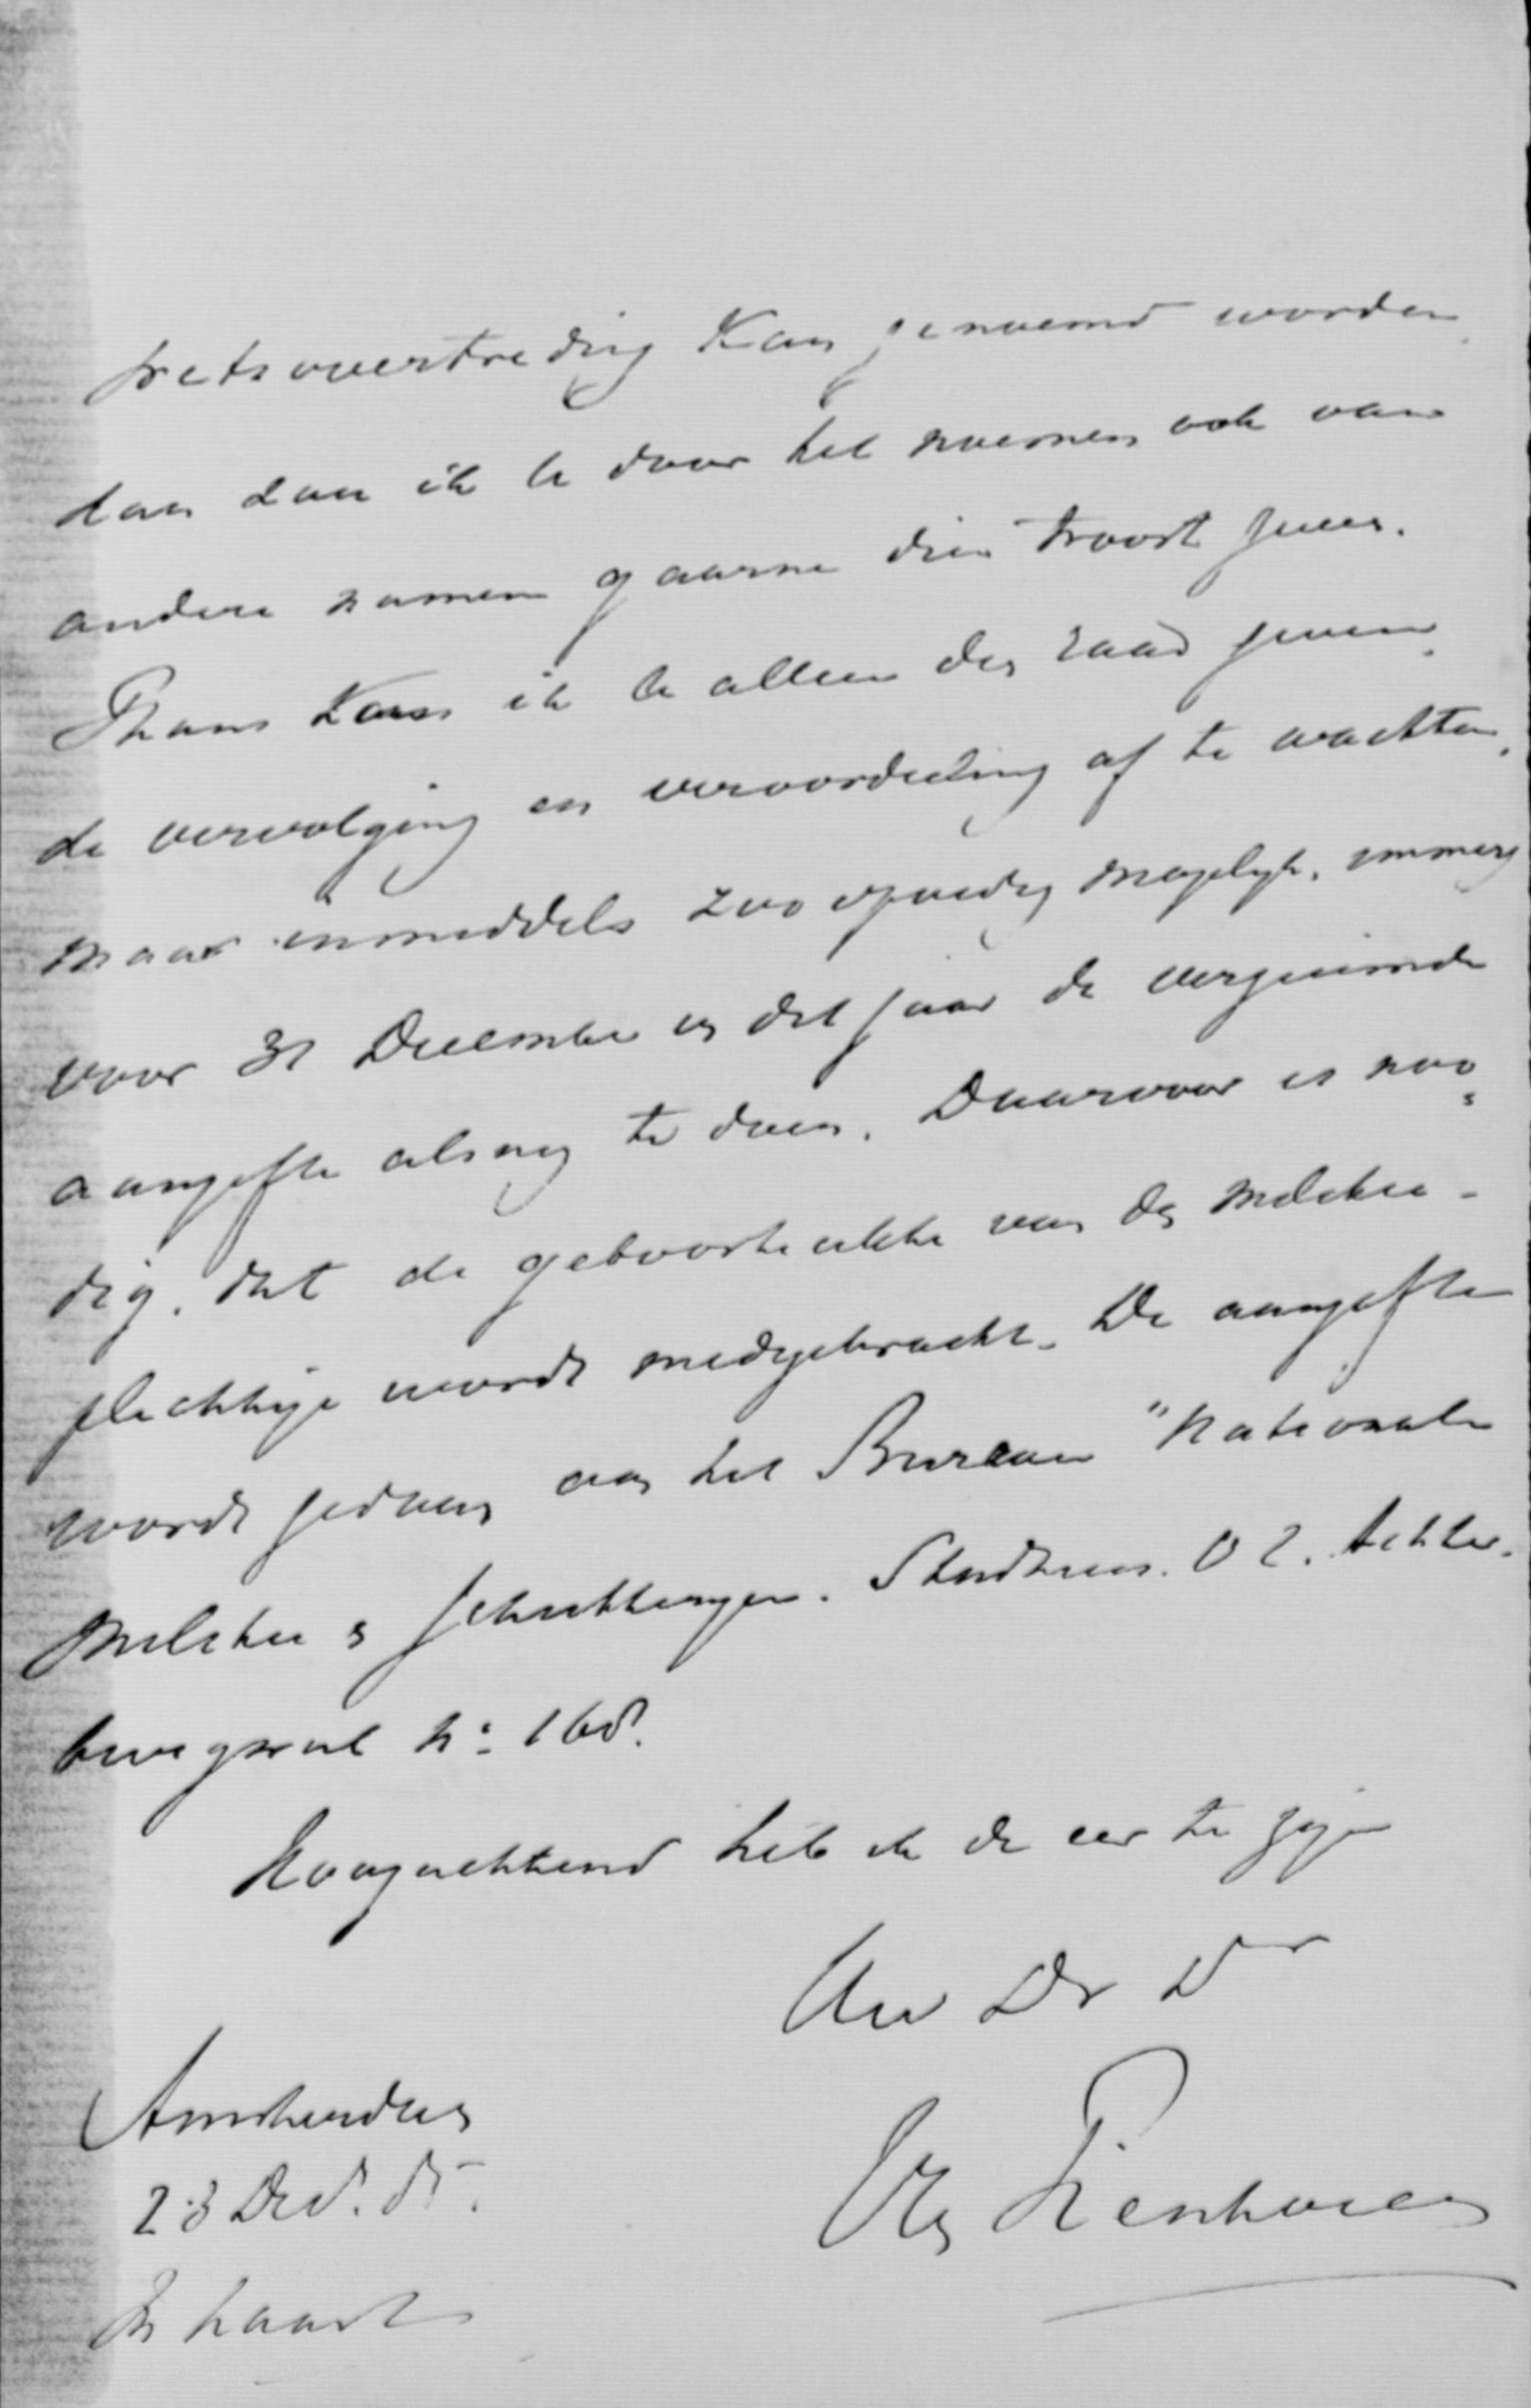 wetsovertreding kan genoemd worden
dan zou ik U door het noemen ook van
andere namen gaarne dien troost geven.
Thans kan ik U alleen den raad geven,
de vervolging en veroordeeling af te wachten,
maar inmiddels zoo spoedig mogelyk, immers
voor 31 December van dit jaar de verzuimde
aangifte alsnog te doen. Daarvoor is noo=
dig, dat de geboorteakte van den militie-
plichtige wordt medegebracht. De aangifte
wordt gedaan aan het Bureau "Nationale
Militie & Schutteryen. Stadhuis. O Z. Achter-
burgwal No 168.
Hoogachtend heb ik de eer te zyn
Uw Dr Dr
Amsterdam
23 Dec. 85.
In haast